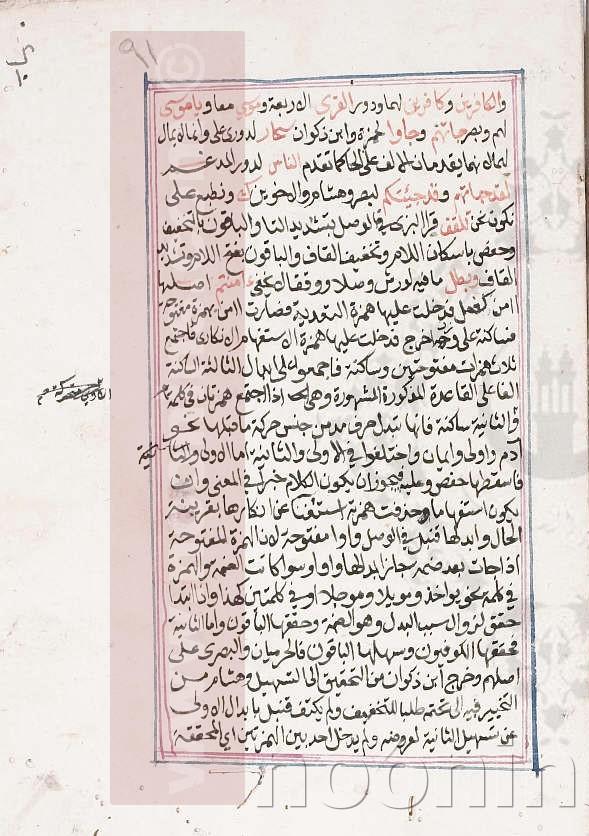 ٩١
والكافرين وكافرين لهما ودور القرى الاربعة وموسى معا وياموسى
لهم وبصر جاءتهم وجاوا لحمزة وابن ذكوان سحار لدورى على وامالة مال
لهما لانهما يقدمان الالف على الحا كما تقدم الناس لدور المدغم
لقد جاءتهم وقد جئتكم لبصر وهشام والاخوين لك ونطبع على
نكون نحن تلقف قرا البزى فى الوصل بتشديد التا والباقون بالتخفيف
وحفص باسكان اللام وتخفيف القاف والباقون بفتح اللام وتشديد
القاف وبطل ما فيه لورش وصلا ووقفا لا يخفى ءامنتم اصلها
اامن كفعل فدخلت عليها همزة التعدية فصارت اامن بهمزة مفتوحة
فساكنة على وزن اخرج فدخلت عليها همزة الاستفهام الانكارى فاجتمع
ثلاث همزات مفتوحتين وساكنة فاجمعوا على ابدال الثالثة الساكنة
الفا على القاعدة المذكورة المشهورة وهى اذا اجتمع همزتان فى كلمة
والثانية ساكنة فانها تبدل حرف مد من جنس حركة ما قبلها نحو
آدم واوتى وايمان واختلفوا فى الاولى والثانية اما الاولى
فاسقطها حفص وعليه فيجوز ان يكون الكلام خبرا فى المعنى وان
يكون استفهاما وحذفت همزته استغناء عن انكارها بقرينة
الحال وابدلها قنبل فى الوصل واوا مفتوحة لان الهمزة المفتوحة
اذا جات بعد ضمة جاز ابدالها واوا وسوا كانت الضمة والهمزة
فى كلمة نحو يواخذ وموجلا او فى كلمتين كهذا واذا ابتدا
حقق لزوال سبب البدل وهو الضمة وحققها الباقون واما الثانية
فحققها الكوفيون وسهلها الباقون فالحرميان والبصرى على
اصلهم وخرج ابن ذكوان من التحقيق الى التسهيل وهشام من
التخيير فيه الى تحتم طلبا للتخفيف ولم يكتف قنبل بابدال الاولى
عن تسهيل الثانية لعروضه ولم يدخل احد بين الهمزتين اى المحققة
noonin